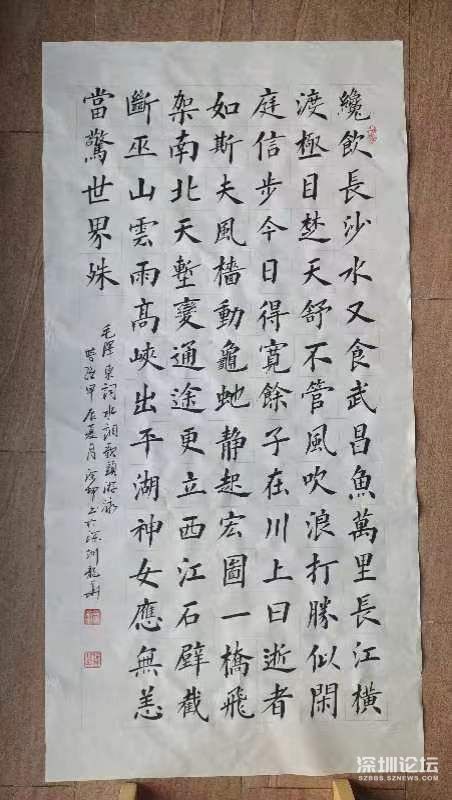 纔飲長沙水又食武昌魚萬里長江橫
渡極目楚天舒不管風吹浪打勝似閑
庭信步今日得寬餘子在川上曰逝者
如斯夫風檣動龜蛇静起宏圖一橋飛
架南北天塹變通途更立西江石壁截
斷巫山雲雨高峽出平湖神女應無恙
當驚世界殊
毛澤東詞水調歌頭游泳
甲辰夏月於深圳龍華
深圳论坛
SZBBS.SZNEWS.COM